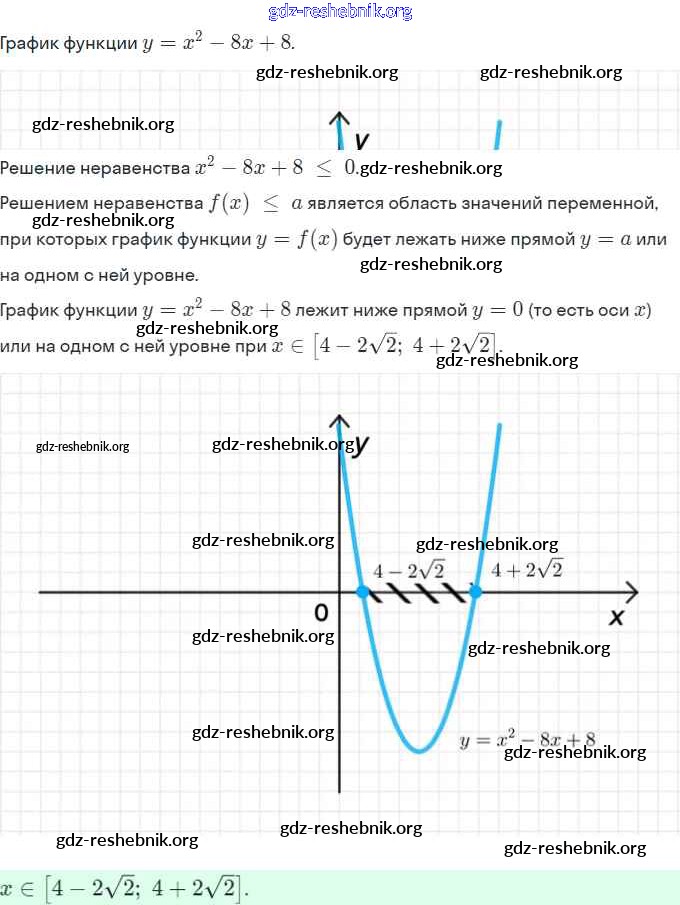 gdz-reshebnik.org
График функции y = x² − 8x + 8.
gdz-reshebnik.org gdz-reshebnik.org
gdz-reshebnik.org
y
Решение неравенства x² − 8x + 8 ≤ 0. gdz-reshebnik.org
Решением неравенства f(x) ≤ a является область значений переменной,
gdz-reshebnik.org
при которых график функции y = f(x) будет лежать ниже прямой y = a или
gdz-reshebnik.org
на одном с ней уровне.
График функции y = x² − 8x + 8 лежит ниже прямой y = 0 (то есть оси x)
gdz-reshebnik.org
или на одном с ней уровне при x ∈ [4 − 2√2; 4 + 2√2].
gdz-reshebnik.org
gdz-reshebnik.org gdz-reshebnik.org y
gdz-reshebnik.org gdz-reshebnik.org
4 − 2√2 4 + 2√2
0 x
gdz-reshebnik.org gdz-reshebnik.org
gdz-reshebnik.org y = x² − 8x + 8
gdz-reshebnik.org
gdz-reshebnik.org gdz-reshebnik.org gdz-reshebnik.org
x ∈ [4 − 2√2; 4 + 2√2].